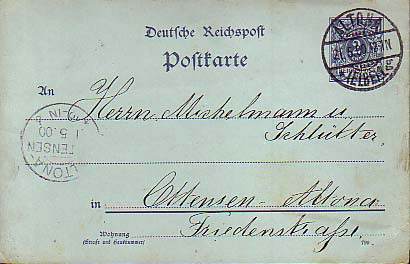 Deutsche Reichspost
Postkarte
ALTONA
An
Herrn Michelmann u
Schlütter
5.00
ALTONA
TENSEN
in Ottensen-Altona
Wohnung
(Straße und Hausnummer)
Friedenstraße.